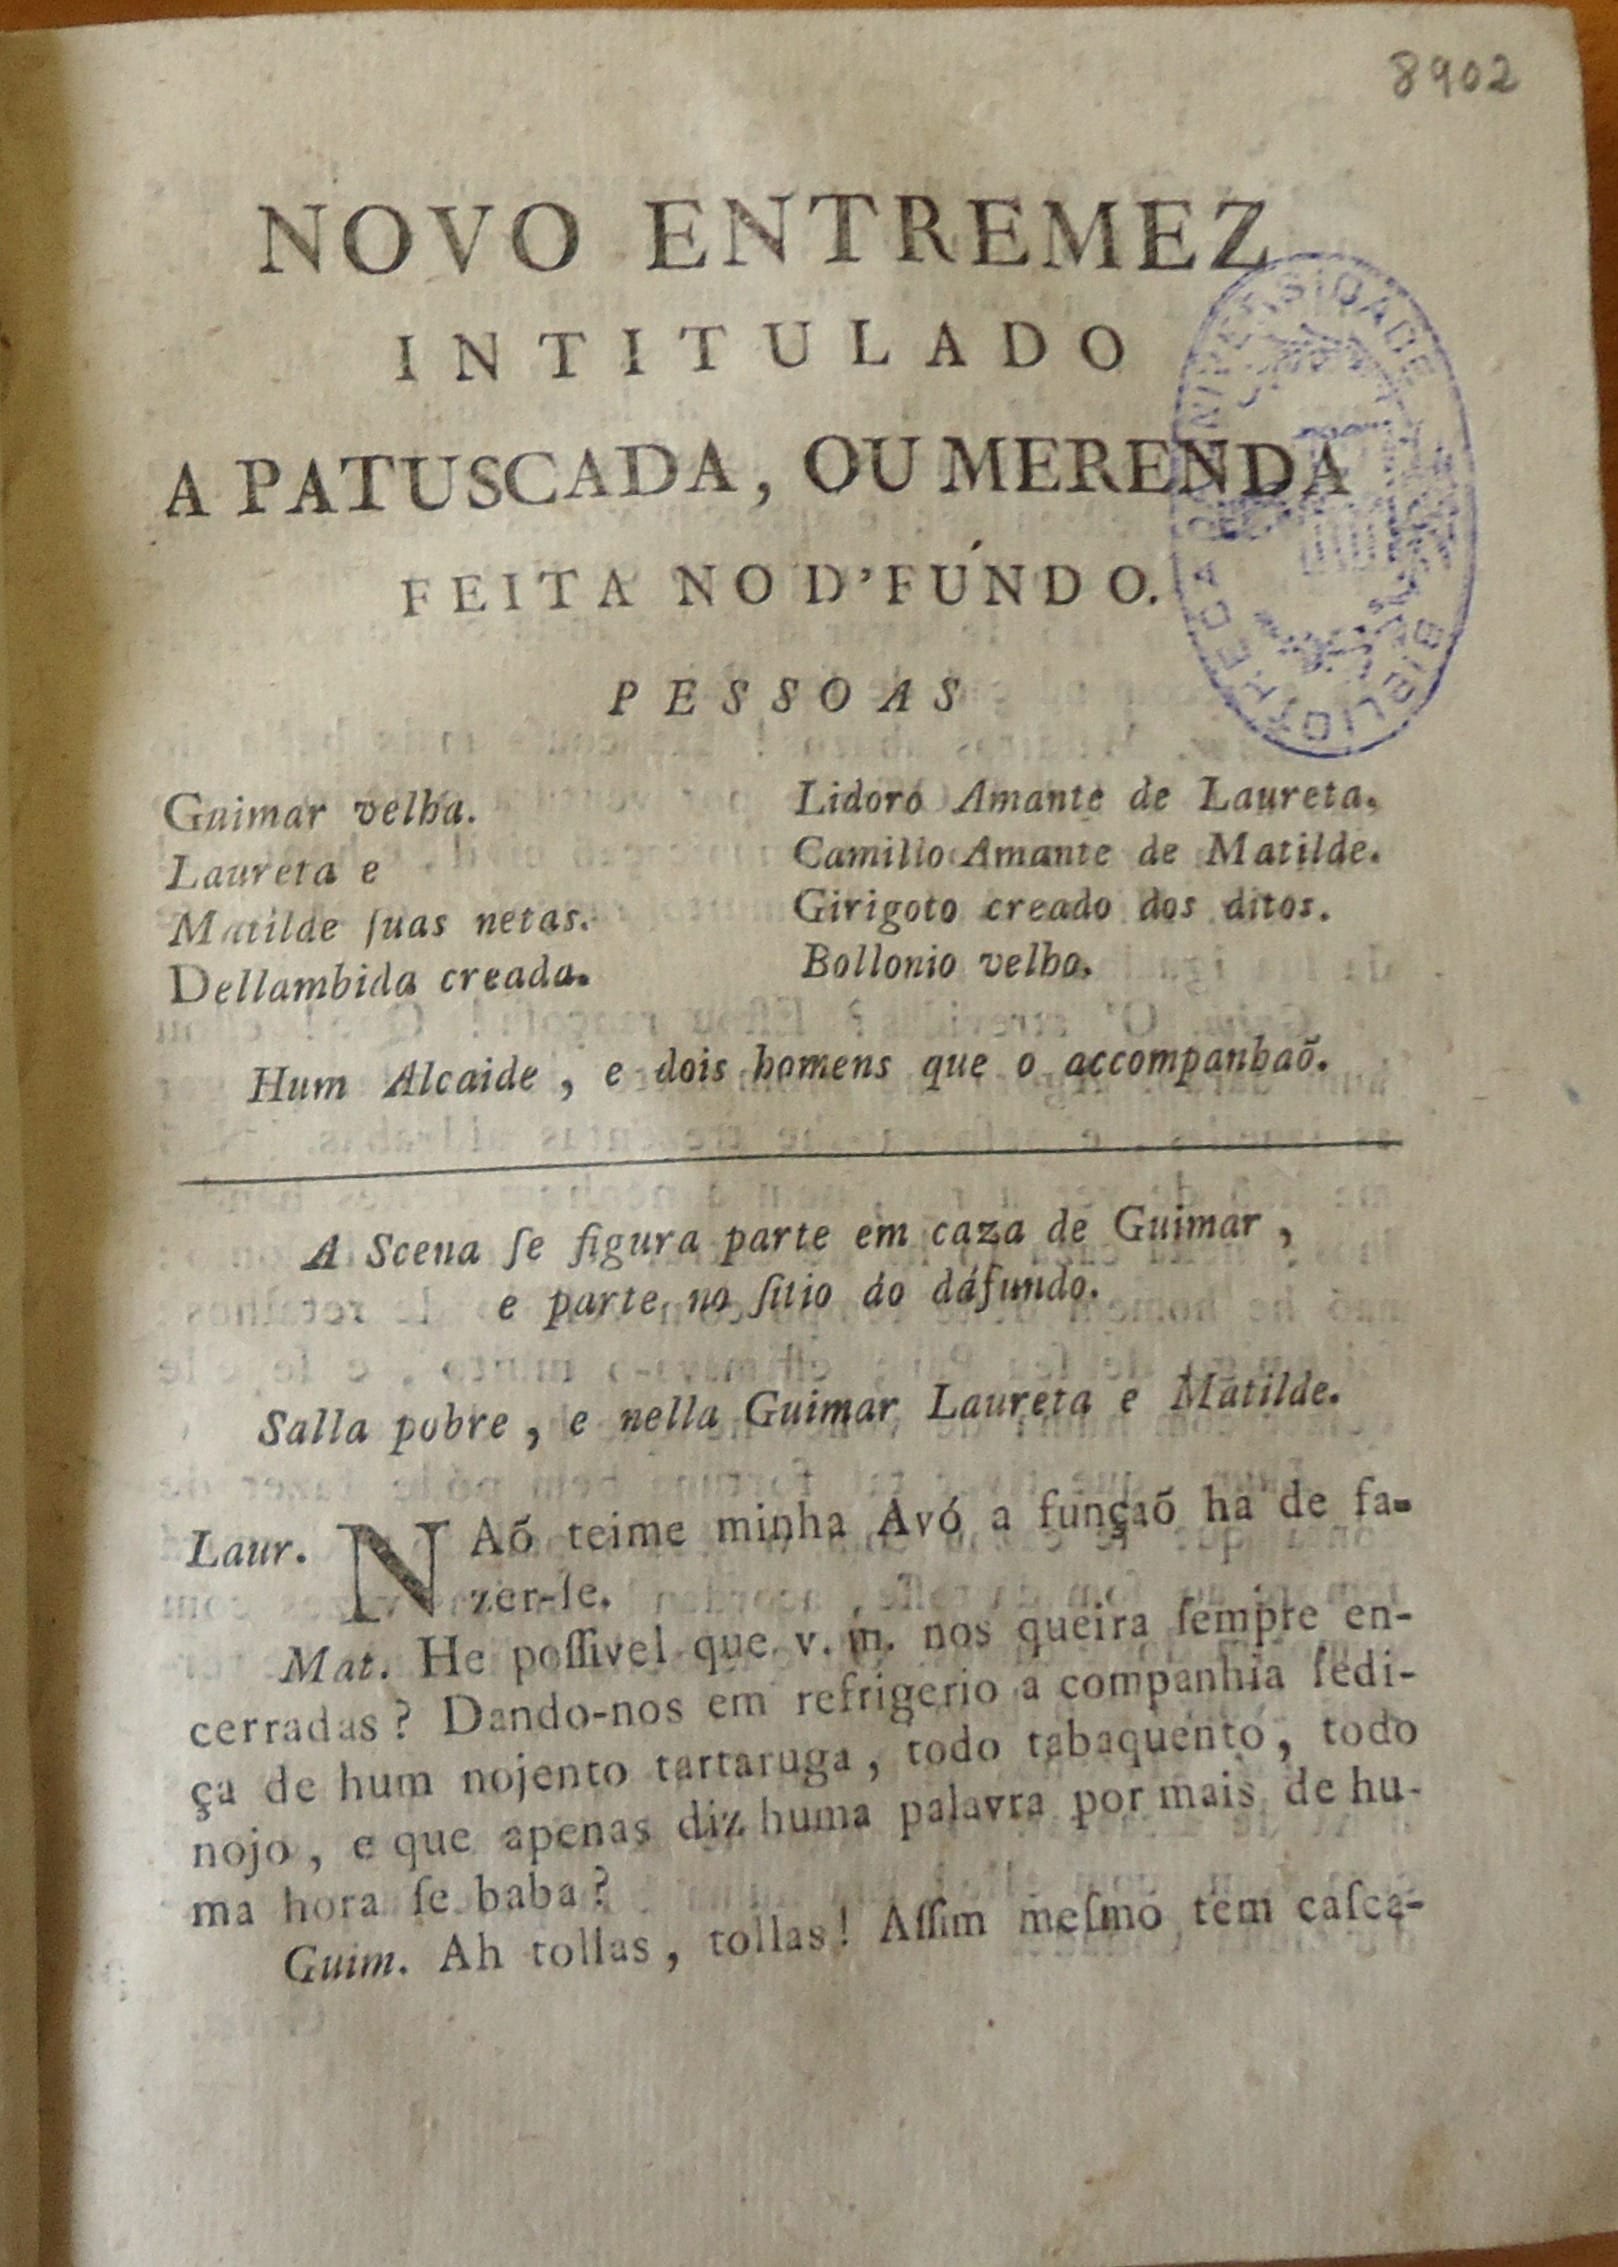 8902
NOVO ENTREMEZ
INTITULADO
A PATUSCADA, OU MERENDA
FEITA NO D'FÚNDO.
BIBLIOTHECA DA UNIVERSIDADE
PESSOAS
Guimar velha.
Laureta e
Matilde ſuas netas.
Dellambida creada.
Lidoro Amante de Laureta.
Camillo Amante de Matilde.
Girigoto creado dos ditos.
Bollonio velho.
Hum Alcaide, e dois homens que o accompanhaõ.
A Scena ſe figura parte em caza de Guimar,
e parte no ſitio do dáfundo.
Salla pobre, e nella Guimar Laureta e Matilde.
Laur. NAõ teime minha Avó a funçaõ ha de fa-
zer-ſe.
Mat. He poſſivel que v. m. nos queira ſempre en-
cerradas? Dando-nos em refrigerio a companhia ſedi-
ça de hum nojento tartaruga, todo tabaquento, todo
nojo, e que apenas diz huma palavra por mais de hu-
ma hora ſe baba?
Guim. Ah tollas, tollas! Aſſim meſmo tem caſca-